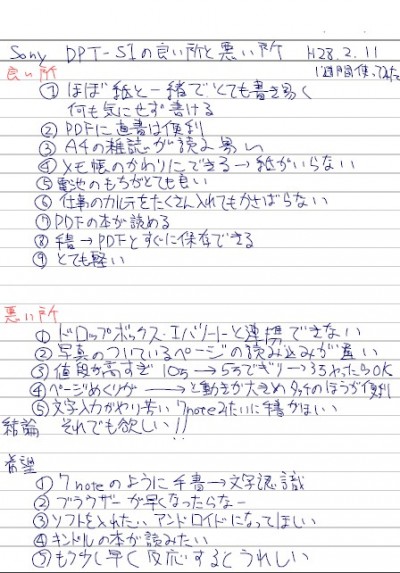 Sony DPT-S1の良い所と悪い所 H28.2.11
良い所 1週間使ってみた
① ほぼ紙と一緒でとても書き易く
何も気にせず書ける
② PDFに直書は便利
③ A4の雑誌が読み易い
④ メモ帳のかわりにできる→紙がいらない
⑤ 電池のもちがとても良い
⑥ 仕事のカルテをたくさん入れてもかさばらない
⑦ PDFの本が読める
⑧ 手書→PDFとすぐに保存できる
⑨ とても軽い
悪い所
① ドロップボックス・エバノートと連携できない
② 写真のついているページの読み込みが
③ 値段が高すぎ 10万→5万でぎり→3万やったらOK
④ ページめくりが → と動きが大きめ タッチのほうが便利
⑤ 文字入力がやり苦い 7noteみたいに手書がほしい
結論 それでも欲しい!!
希望
① 7noteのように手書→文字認識
② ブラウザーが早くなったらなー
③ ソフトを入れたい アンドロイドになってほしい
④ キンドルの本が読みたい
⑤ もう少し早く反応するとうれしい